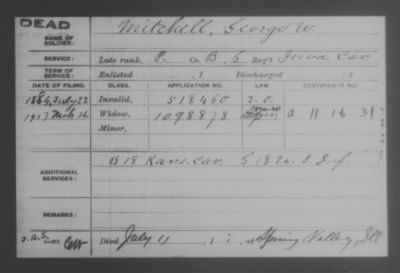 DEAD
NAME OF SOLDIER: Mitchell, George W.
SERVICE: Late rank, P. Co. B, 6 Reg't Iowa Cav
TERM OF SERVICE: Enlisted , 1 Discharged , 1
DATE OF FILING. CLASS. APPLICATION NO. LAW. CERTIFICATE NO.
1884, July 22 Invalid, 518460
1917 Widow, 1098878 2-11-16-31
Minor,
ADDITIONAL SERVICES: B 18 Kans. Cav. G 18 U.S. Inf.
REMARKS:
Died July 11 , 1 , at Spring Valley, Ill